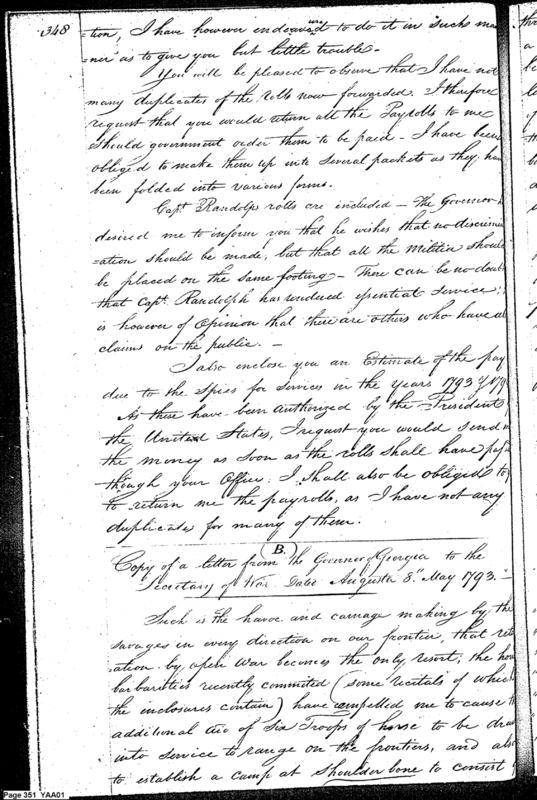 348
=tion, I have however endeavured to do it in such man
=ner as to give you but little trouble -
You will be pleased to observe that I have not
many duplicates of the rolls now forwarded. I therefore
request that you would return all the Payrolls to me
should government order them to be paid - I have been
obliged to make them up into several packets as they ha
been folded into various forms.
Capt. Randolp rolls are included - The Governor
desired me to inform you that he wishes that no discrimin
=ation should be made, but that all the Militia should
be placed on the same footing - There can be no doubt
that Capt. Randolph has rendered essential service;
is however of Opinion that there are others who have
claims on the public. -
I also enclose you an Estimate of the pay
due to the Spies for Services in the years 1793 & 179
As these have been authorized by the President
the United States, I request you would send
the money as soon as the rolls shall have pas
though your Office. I shall also be obliged to
to return me the payrolls, as I have not any
duplicates for many of them.
B.
Copy of a letter from the Governor of Georgia to the
Secretary of War Dated Augusta 8th May 1793. -
Such is the havoc and carnage making by the
savages in every direction on our frontier, that reta
=ation by open War becomes the only resort; the hor
barbarities recently commited (some recitals of which
the inclosures contain) have compelled me to cause
additional of Six Troops of horse to be dra
into service to range on the frontiers, and als
to establish a camp at Shoulder bone to consist
Page 351 YAA01